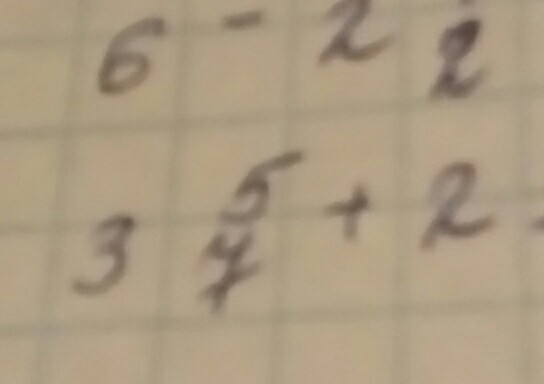 6 - 2 2
3 5/7 + 2